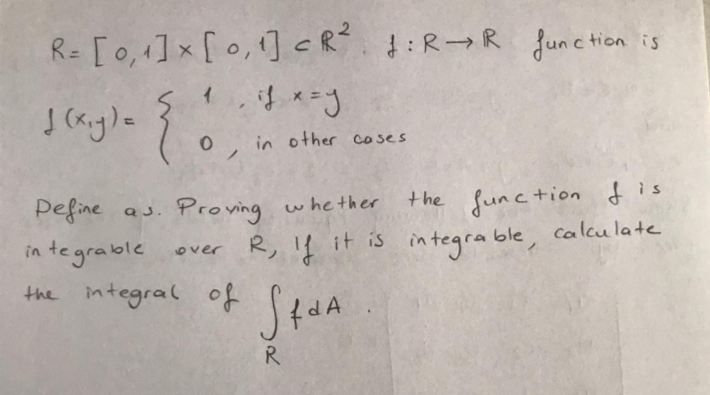 R = [0,1] × [0,1] ⊂ ℝ². f : R → ℝ function is
f(x,y) = { 1, if x=y
0, in other cases
Define as. Proving whether the function f is
integrable over R, If it is integrable, calculate
the integral of ∫ f dA .
R